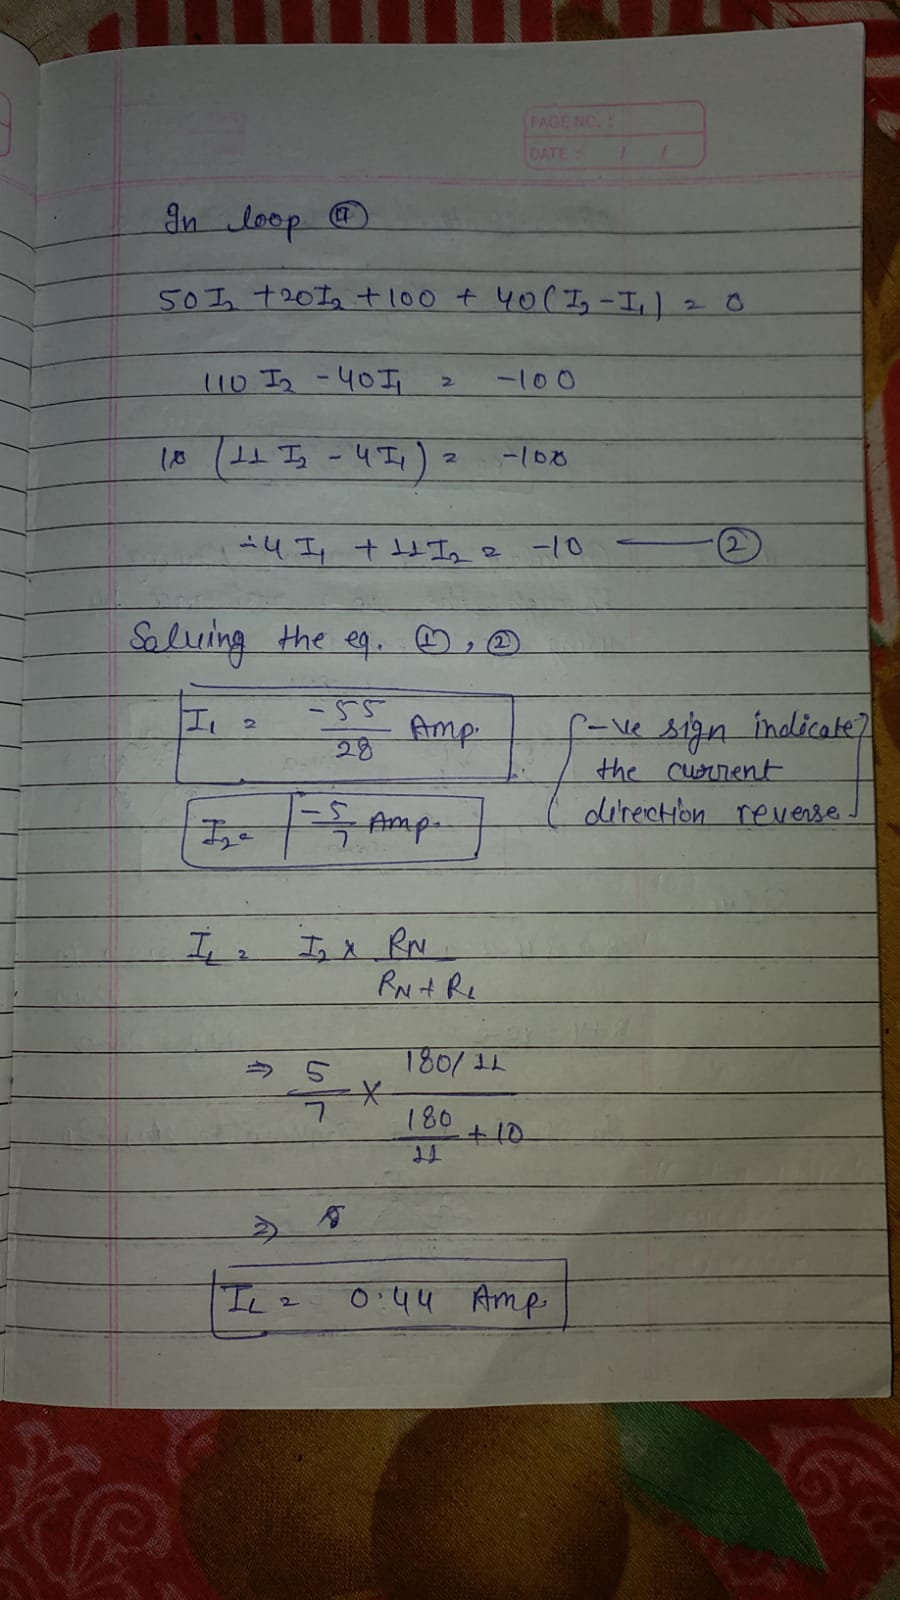 PAGE NO. :
DATE : / /
In loop ②
50I₂ +20I₂ +100 + 40(I₂-I₁) = 0
110 I₂ - 40I₁ = -100
10 (11 I₂ - 4I₁) = -100
-4 I₁ + 11I₂ = -10 — ②
Soluing the eq. ①, ②
I₁ = -55/28 Amp.
{-ve sign indicate the current direction reverse}
I₂ = -5/7 Amp.
I_L = I₂ × R_N / (R_N + R_L)
⇒ 5/7 × (180/11) / (180/11 + 10)
⇒
I_L = 0.44 Amp.